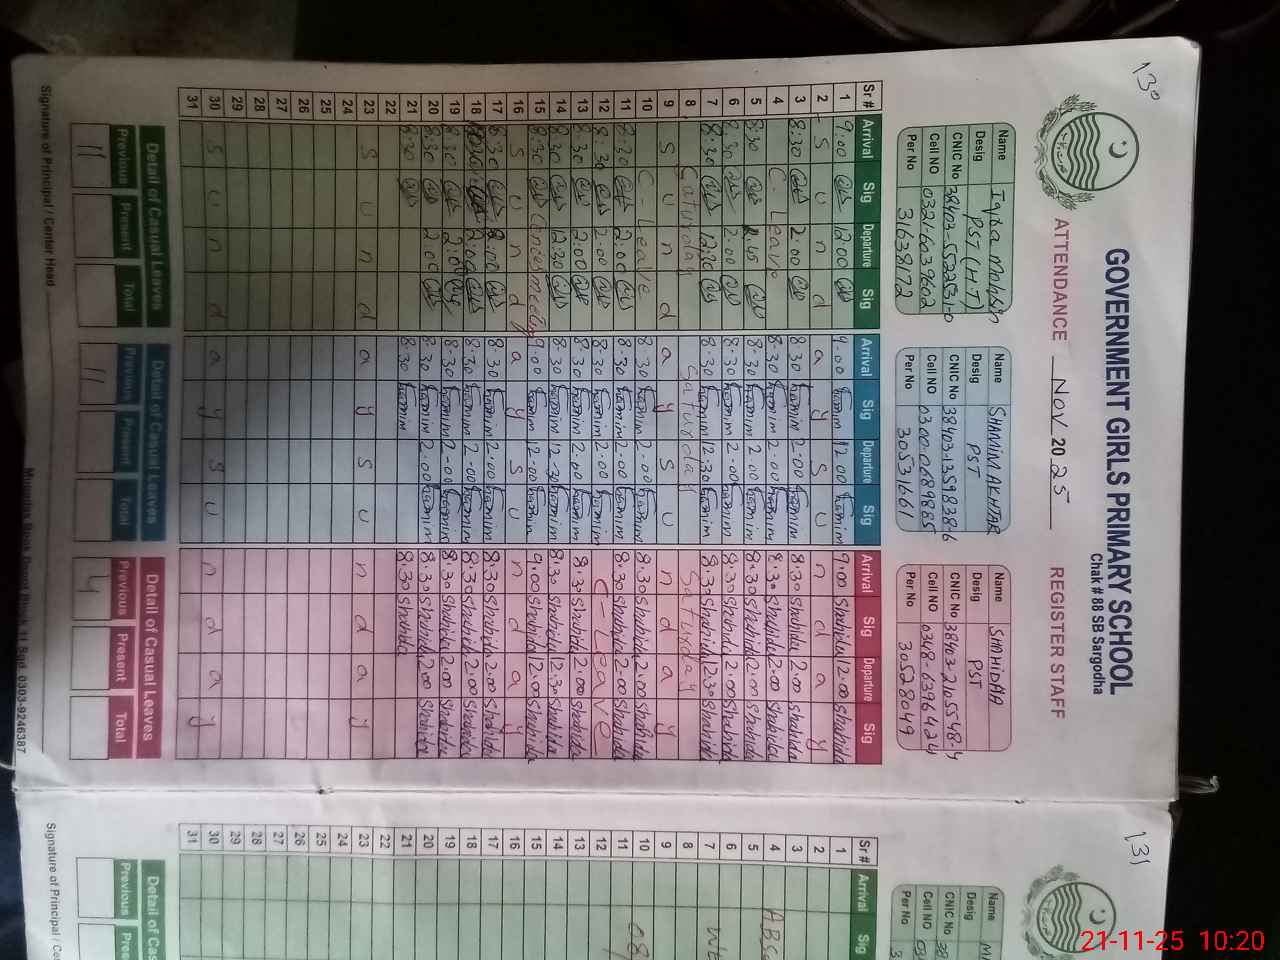 130
GOVERNMENT GIRLS PRIMARY SCHOOL
Chak # 88 SB Sargodha
ATTENDANCE Nov 2025 REGISTER STAFF
Name Iqra Mohsin
Desig PST (H.T)
CNIC No
Cell NO 03216039602
Per No 31638172
Name SHAMIM AKHTAR
Desig PST
CNIC No 38403-1359838-6
Cell NO 0300-0689885
Per No 30531661
Name SHAHIDAA
Desig PST
CNIC No 38403-2105548-4
Cell NO 0348-6396424
Per No 30528049
Sr # Arrival Sig Departure Sig Arrival Sig Departure Sig Arrival Sig Departure Sig
1 9:00 12:00 9.00 hamim 12.00 hamim 9.00 Shahida 12.00 Shahida
2 S u n d a y S u n d a y
3 8:30 2.00 8.30 hamim 2.00 hamim 8.30 Shahida 2.00 Shahida
4 C. Leave 8.30 hamim 2.00 hamim 8.30 Shahida 2.00 Shahida
5 8:30 8.30 hamim 2.00 hamim 8.30 Shahida 2.00 Shahida
6 8:30 2.00 8.30 hamim 2.00 hamim 8.30 Shahida 2.00 Shahida
7 8:30 12:30 8.30 hamim 12.30 hamim 8.30 Shahida 12.30 Shahida
8 Saturday Saturday Saturday
9 S u n d a y S u n d a y
10 C-Leave 8.30 hamim 2.00 hamim 8.30 Shahida 2.00 Shahida
11 8:30 2:00 8.30 hamim 2.00 hamim 8.30 Shahida 2.00 Shahida
12 8:30 2:00 8.30 hamim 2.00 hamim C-Leave
13 8:30 2:00 8.30 hamim 2.00 hamim 8.30 Shahida 2.00 Shahida
14 8:30 12:30 8.30 hamim 12.30 hamim 8.30 Shahida 12.30 Shahida
15 8:30 9.00 hamim 12.00 hamim 9.00 Shahida 12.00 Shahida
16 S u n d a y S u n d a y
17 8:30 2:00 8.30 hamim 2.00 hamim 8.30 Shahida 2.00 Shahida
18 2:00 8.30 hamim 2.00 hamim 8.30 Shahida 2.00 Shahida
19 8:30 2:00 8.30 hamim 2.00 hamim 8.30 Shahida 2.00 Shahida
20 8:30 2:00 8.30 hamim 2.00 hamim 8.30 Shahida 2.00 Shahida
21 8:30 8.30 hamim 8.30 Shahida
22
23 S u n d a y S u n d a y
24
25
26
27
28
29
30 S u n d a y S u n d a y
31
Detail of Casual Leaves Detail of Casual Leaves Detail of Casual Leaves
Previous Present Total Previous Present Total Previous Present Total
11 11 4
Signature of Principal / Center Head
0303-9246387
131
Name
Desig
CNIC No
Cell NO
Per No
Sr # Arrival Sig
1
2
3
4
5
6
7
8
9
10
11
12
13
14
15
16
17
18
19
20
21
22
23
24
25
26
27
28
29
30
31
Detail of Cas
Previous Pre
Signature of Principal / Ce
21-11-25 10:20